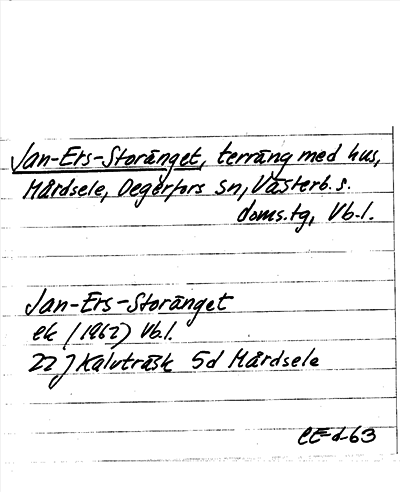 Jan-Ers-Storänget, terräng med hus,
Mårdsele, Degerfors sn, Västerb. s.
doms.tg, Vb.l.
Jan-Ers-Storänget
ek (1962) Vb.l.
22 J Kalvträsk 5d Mårdsele
CE-d-63